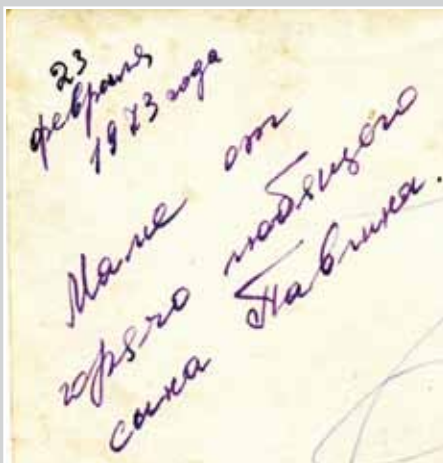 23
февраля
1973 года
Маме от
горячо любящего
сына Павлика.